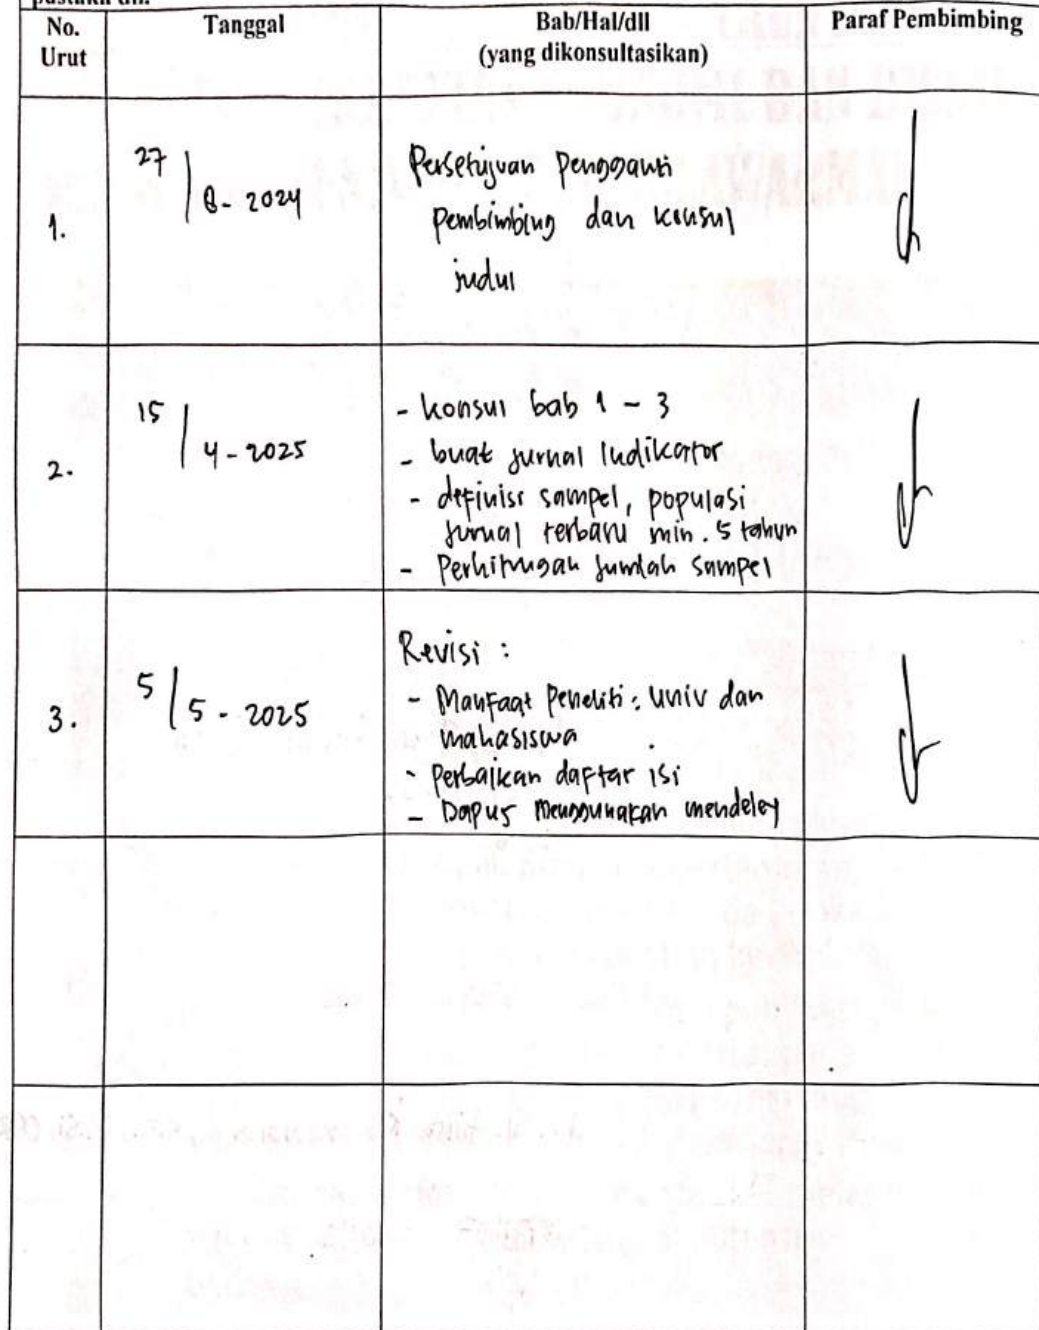 No. Urut
Tanggal
Bab/Hal/dll
(yang dikonsultasikan)
Paraf Pembimbing
1.
27/8-2024
Persetujuan Pengganti
Pembimbing dan konsul
judul
2.
15/4-2025
- konsul bab 1 - 3
- buat jurnal Indikator
- definisi sampel, populasi
jurnal terbaru min. 5 tahun
- Perhitungan jumlah sampel
3.
5/5-2025
Revisi :
- Manfaat Peneliti : Univ dan
mahasiswa
- Perbaikan daftar isi
- Dapus menggunakan mendeley